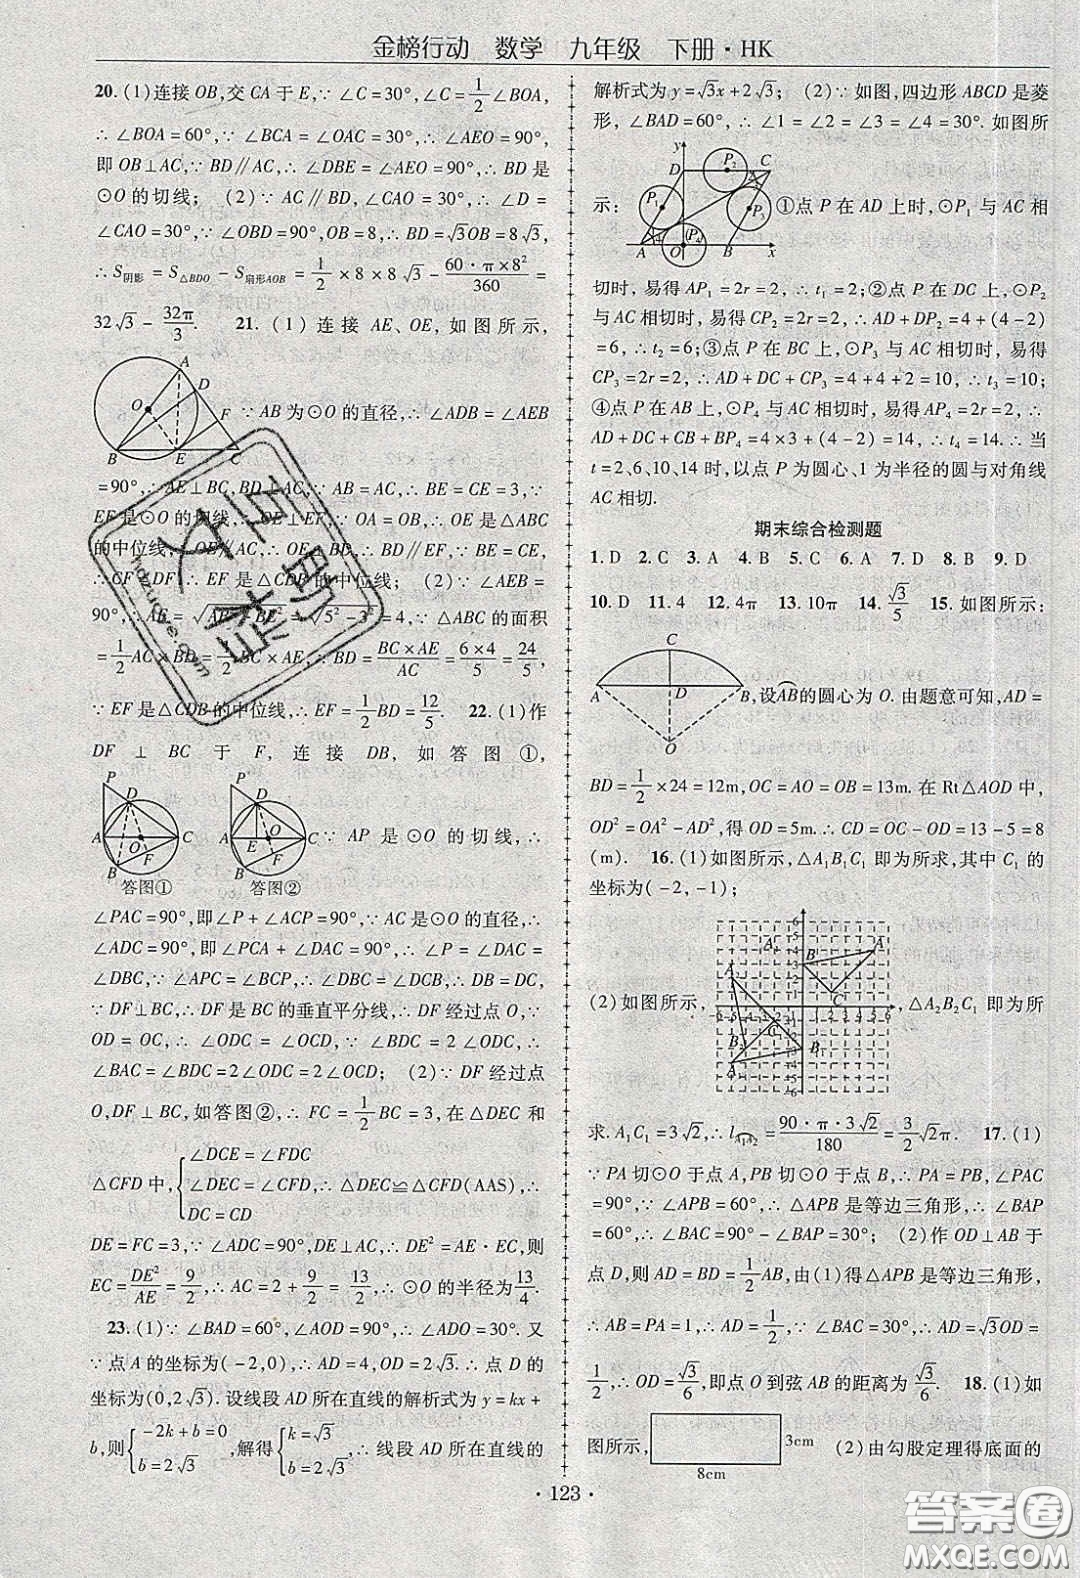 金榜行动 数学 九年级 下册·HK
20. (1)连接OB,交CA于E,∵∠C=30°,∠C=1/2∠BOA,
∴∠BOA=60°,∵∠BCA=∠OAC=30°,∴∠AEO=90°,
即OB⊥AC,∵BD∥AC,∴∠DBE=∠AEO=90°,∴BD是
⊙O的切线; (2)∵AC∥BD,∠CAO=30°,∴∠D=
∠CAO=30°,∵∠OBD=90°,OB=8,∴BD=√3OB=8√3,
∴S阴影=S△BDO-S扇形AOB=1/2×8×8√3-60·π×8²/360=
32√3-32π/3. 21. (1)连接AE、OE,如图所示,
A D O F B E C
∵AB为⊙O的直径,∴∠ADB=∠AEB
=90°,∴AE⊥BC,BD⊥AC,∵AB=AC,∴BE=CE=3,∵
EF是⊙O的切线,∴OE⊥EF,∵OA=OB,∴OE是△ABC
的中位线,∴OE∥AC,∴OE⊥BD,∴BD∥EF,∵BE=CE,
∴CF=DF,∴EF是△CDB的中位线; (2)∵∠AEB=
90°,∴AE=√AB²-BE²=√5²-3²=4,∵△ABC的面积
=1/2AC×BD=1/2BC×AE,∴BD=BC×AE/AC=6×4/5=24/5,
∵EF是△CDB的中位线,∴EF=1/2BD=12/5. 22. (1)作
DF⊥BC于F,连接DB,如答图①,
P D A O C F B
P D A E O C F B
答图① 答图②
∵AP是⊙O的切线,∴
∠PAC=90°,即∠P+∠ACP=90°,∵AC是⊙O的直径,∴
∠ADC=90°,即∠PCA+∠DAC=90°,∴∠P=∠DAC=
∠DBC,∵∠APC=∠BCP,∴∠DBC=∠DCB,∴DB=DC,
∵DF⊥BC,∴DF是BC的垂直平分线,∴DF经过点O,∵
OD=OC,∴∠ODC=∠OCD,∵∠BDC=2∠ODC,∴
∠BAC=∠BDC=2∠ODC=2∠OCD; (2)∵DF经过点
O,DF⊥BC,如答图②,∴FC=1/2BC=3,在△DEC和
△CFD中,{∠DCE=∠FDC
∠DEC=∠CFD,∴△DEC≌△CFD(AAS),∴
DC=CD
DE=FC=3,∵∠ADC=90°,DE⊥AC,∴DE²=AE·EC,则
EC=DE²/AE=9/2,∴AC=2+9/2=13/2,∴⊙O的半径为13/4.
23. (1)∵∠BAD=60°,∠AOD=90°,∴∠ADO=30°.又
∵点A的坐标为(-2,0),∴AD=4,OD=2√3,∴点D的
坐标为(0,2√3).设线段AD所在直线的解析式为y=kx+
b,则{-2k+b=0 b=2√3,解得{k=√3 b=2√3,∴线段AD所在直线的
解析式为y=√3x+2√3; (2)∵如图,四边形ABCD是菱
形,∠BAD=60°,∴∠1=∠2=∠3=∠4=30°.如图所
示:
y D P₂ C P₁ P₃ (P₄) A O B x
①点P在AD上时,⊙P₁与AC相
切时,易得AP₁=2r=2,∴t₁=2;②点P在DC上,⊙P₂
与AC相切时,易得CP₂=2r=2,∴AD+DP₂=4+(4-2)
=6,∴t₂=6;③点P在BC上,⊙P₃与AC相切时,易得
CP₃=2r=2,∴AD+DC+CP₃=4+4+2=10,∴t₃=10;
④点P在AB上,⊙P₄与AC相切时,易得AP₄=2r=2,∴
AD+DC+CB+BP₄=4×3+(4-2)=14,∴t₄=14.∴当
t=2、6、10、14时,以点P为圆心、1为半径的圆与对角线
AC相切.
期末综合检测题
1. D 2. C 3. A 4. B 5. C 6. A 7. D 8. B 9. D
10. D 11. 4 12. 4π 13. 10π 14. √3/5 15. 如图所示:
C A D B O
,设AB的圆心为O.由题意可知,AD=
BD=1/2×24=12m,OC=AO=OB=13m.在Rt△AOD中,
OD²=OA²-AD²,得OD=5m.∴CD=OC-OD=13-5=8
(m). 16. (1)如图所示,△A₁B₁C₁即为所求,其中C₁的
坐标为(-2,-1);
(2)如图所示,
,△A₂B₂C₁即为所
求.A₁C₁=3√2,∴lA₁A₂=90·π·3√2/180=3/2√2π. 17. (1)
∵PA切⊙O于点A,PB切⊙O于点B,∴PA=PB,∠PAC
=90°,∵∠APB=60°,∴△APB是等边三角形,∴∠BAP=
60°,∴∠BAC=90°-∠BAP=30°; (2)作OD⊥AB于
点D,则AD=BD=1/2AB,由(1)得△APB是等边三角形,
∴AB=PA=1,∴AD=1/2,∵∠BAC=30°,∴AD=√3OD=
1/2,∴OD=√3/6,即点O到弦AB的距离为√3/6. 18. (1)如
图所示,
3cm
8cm
(2)由勾股定理得底面的
·123·
答案圈
MXQE.COM